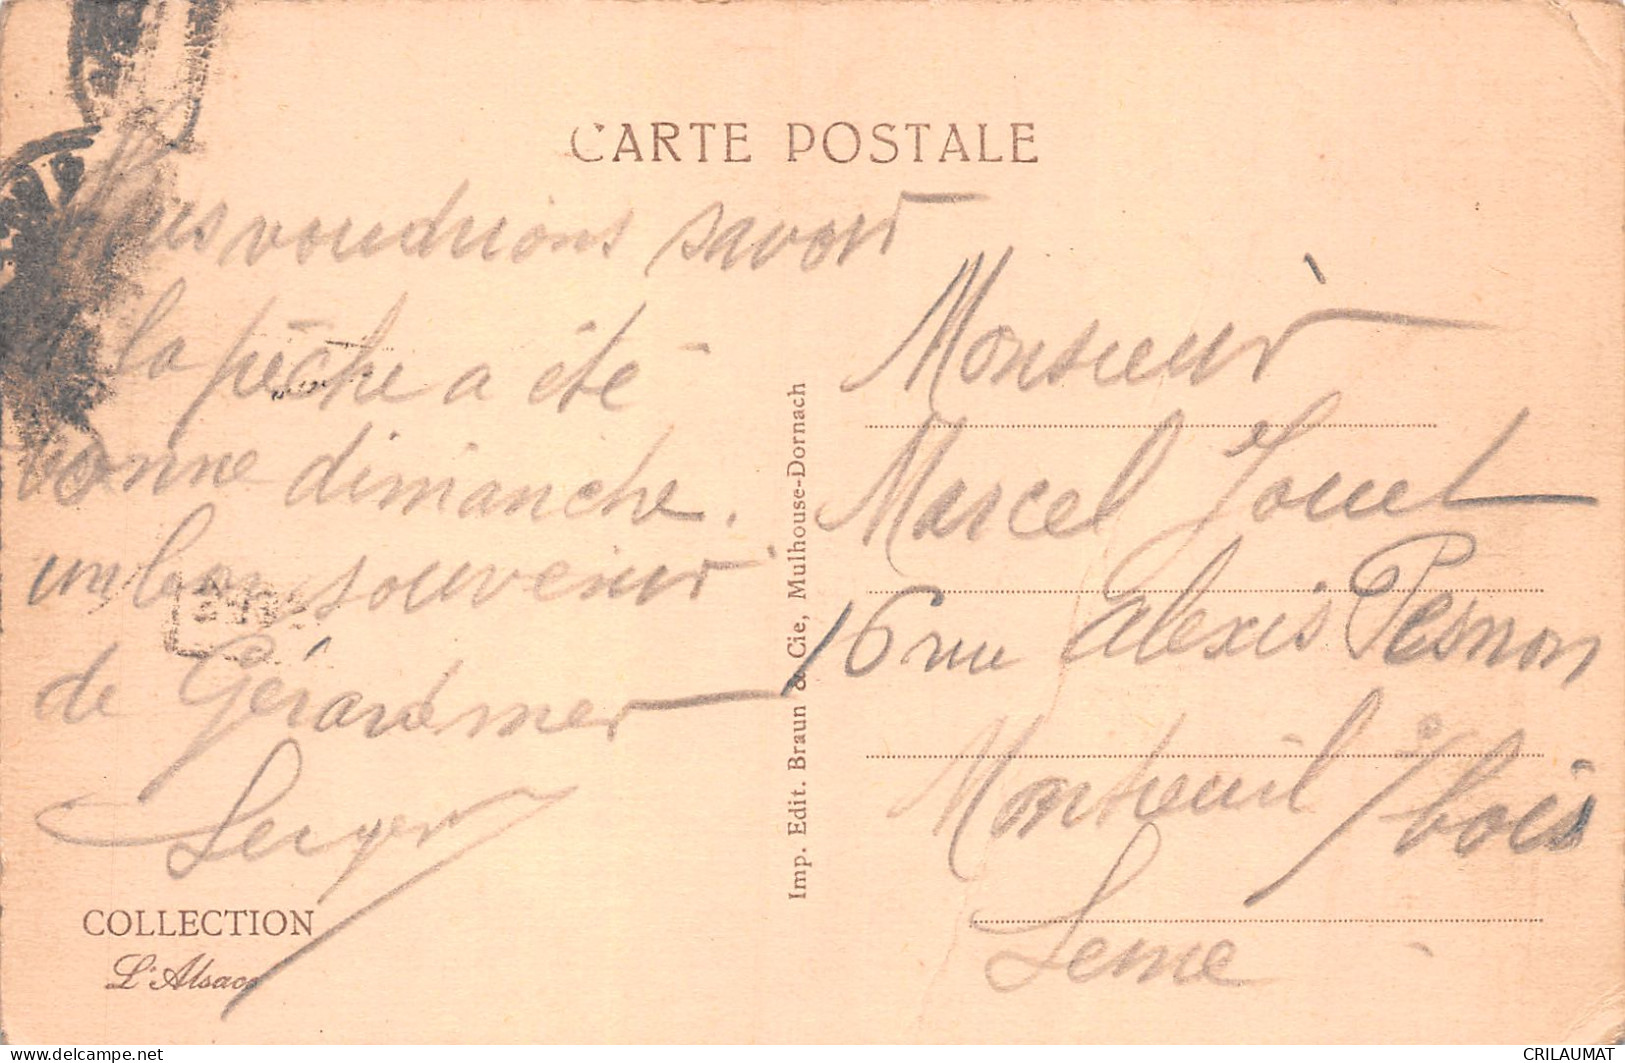 CARTE POSTALE
Nous voudrions savoir
si la pêche a été
bonne dimanche.
un bon souvenir
de Gérardmer
COLLECTION
L'Alsace
Imp. Edit. Braun & Cie, Mulhouse-Dornach
Monsieur
Marcel Jouet
16 rue Alexis Pesnon
Montreuil s/bois
Seine
delcampe.net
CRILAUMAT